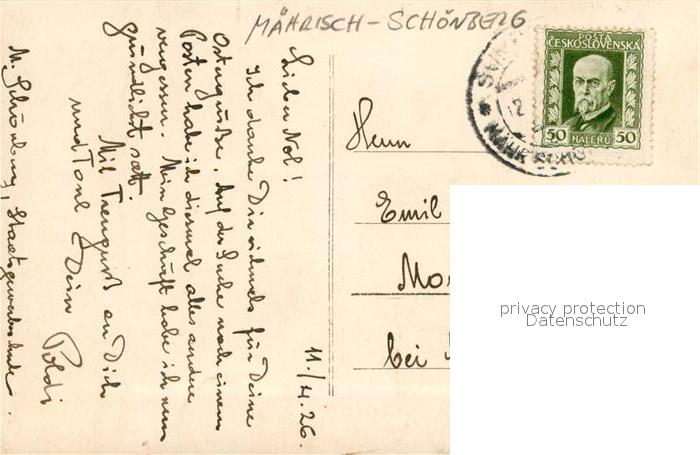 MÄHRISCH-SCHÖNBERG
POSTA
ČESKOSLOVENSKÁ
50 HALERU 50
MÄHR. SCHÖ
Herrn
Emil
Mo
bei
privacy protection
Datenschutz
11./4.26.
Lieber Nol!
Ich danke Dir vielmals für Deine
Ostergrüße. Auf der Suche nach einem
Posten habe ich diesmal alles andere
vergessen. Mein Geschäft habe ich nun
gründlich satt.
Mit Treugruß an Dich
und Toni
Dein Poldi
M. Schönberg, Staatsgewerbeschule.